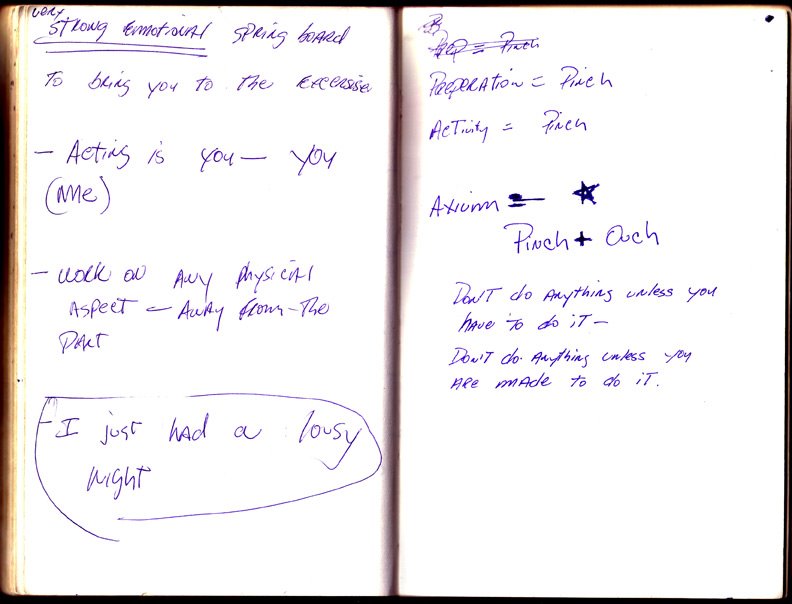 very
strong emotional spring board
to bring you to the excersise
- Acting is you - you
(me)
- work on any physical
aspect - away from - the
part
- I just had a lousy
night
Prep = Pinch
Preperation = Pinch
Activity = Pinch
Axiom = ★
Pinch + Ouch
Don't do anything unless you
have to do it -
Don't do anything unless you
are made to do it.